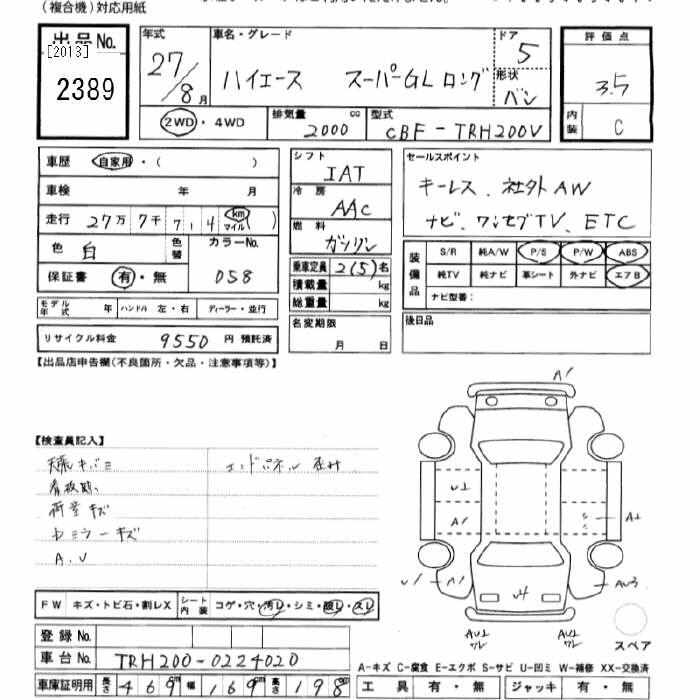 (複合機)対応用紙
出品No.
[2013]
2389
年式
27/8月
車名・グレード
ハイエース スーパーGL ロング
ドア
5
形状
バン
評価点
3.5
内装
C
2WD・4WD
排気量
2000
cc
型式
CBF-TRH200V
車歴 自家用・( )
車検 年 月
走行 27万7千7,4 km マイル ( )
色 白
色替
カラーNo.
058
保証書 有・無
モデル年式 年 ハンドル 左・右 ディーラー・並行
リサイクル料金 9550 円 預託済
シフト
IAT
冷房
AAC
燃料
ガソリン
乗車定員 2(5)名
積載量 kg
総重量 kg
名変期限
月 日
セールスポイント
キーレス、社外AW
ナビ、ワンセグTV、ETC
装備品
S/R 純A/W P/S P/W ABS
純TV 純ナビ 革シート 外ナビ エアB
ナビ型番:
後日品
【出品店申告欄(不良箇所・欠品・注意事項等)】
【検査員記入】
天張キバミ
エンドパネル
看板跡
荷室キズ
ミラーキズ
A.V
A1
U1
A1
A1
U1
A1
AU3
U4
AU2
ワレ
AU2
ワレ
スペア
FW キズ・トビ石・割レX シート内装 コゲ・穴・汚レ・シミ・酸レ・スレ
登録No.
車台No. TRH200-0224020
車庫証明用 長さ 469cm 幅 169cm 高さ 198cm
A−キズ C−腐食 E−エクボ S−サビ U−凹ミ W−補修 XX−交換済
工具 有・無 ジャッキ 有・無